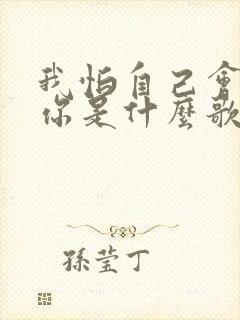 我怕自己會
你是什麼歌
孫瑩丁